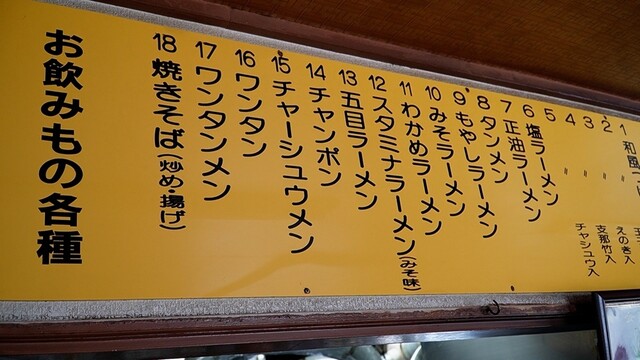 1 和風
2 〃 えのき入
3 〃 支那竹入
4 〃 チャシュウ入
5 塩ラーメン
6 正油ラーメン
7 タンメン
8 もやしラーメン
9 みそラーメン
10 わかめラーメン
11 スタミナラーメン(みそ味)
12 五目ラーメン
13 チャンポン
14 チャーシュウメン
15 ワンタン
16 ワンタンメン
17 焼きそば(炒め・揚げ)
18
お飲みもの各種